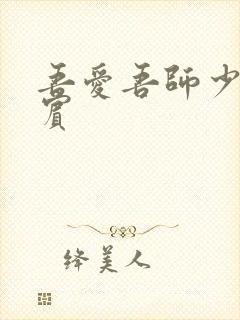 吾愛吾師少
賓
绛美人